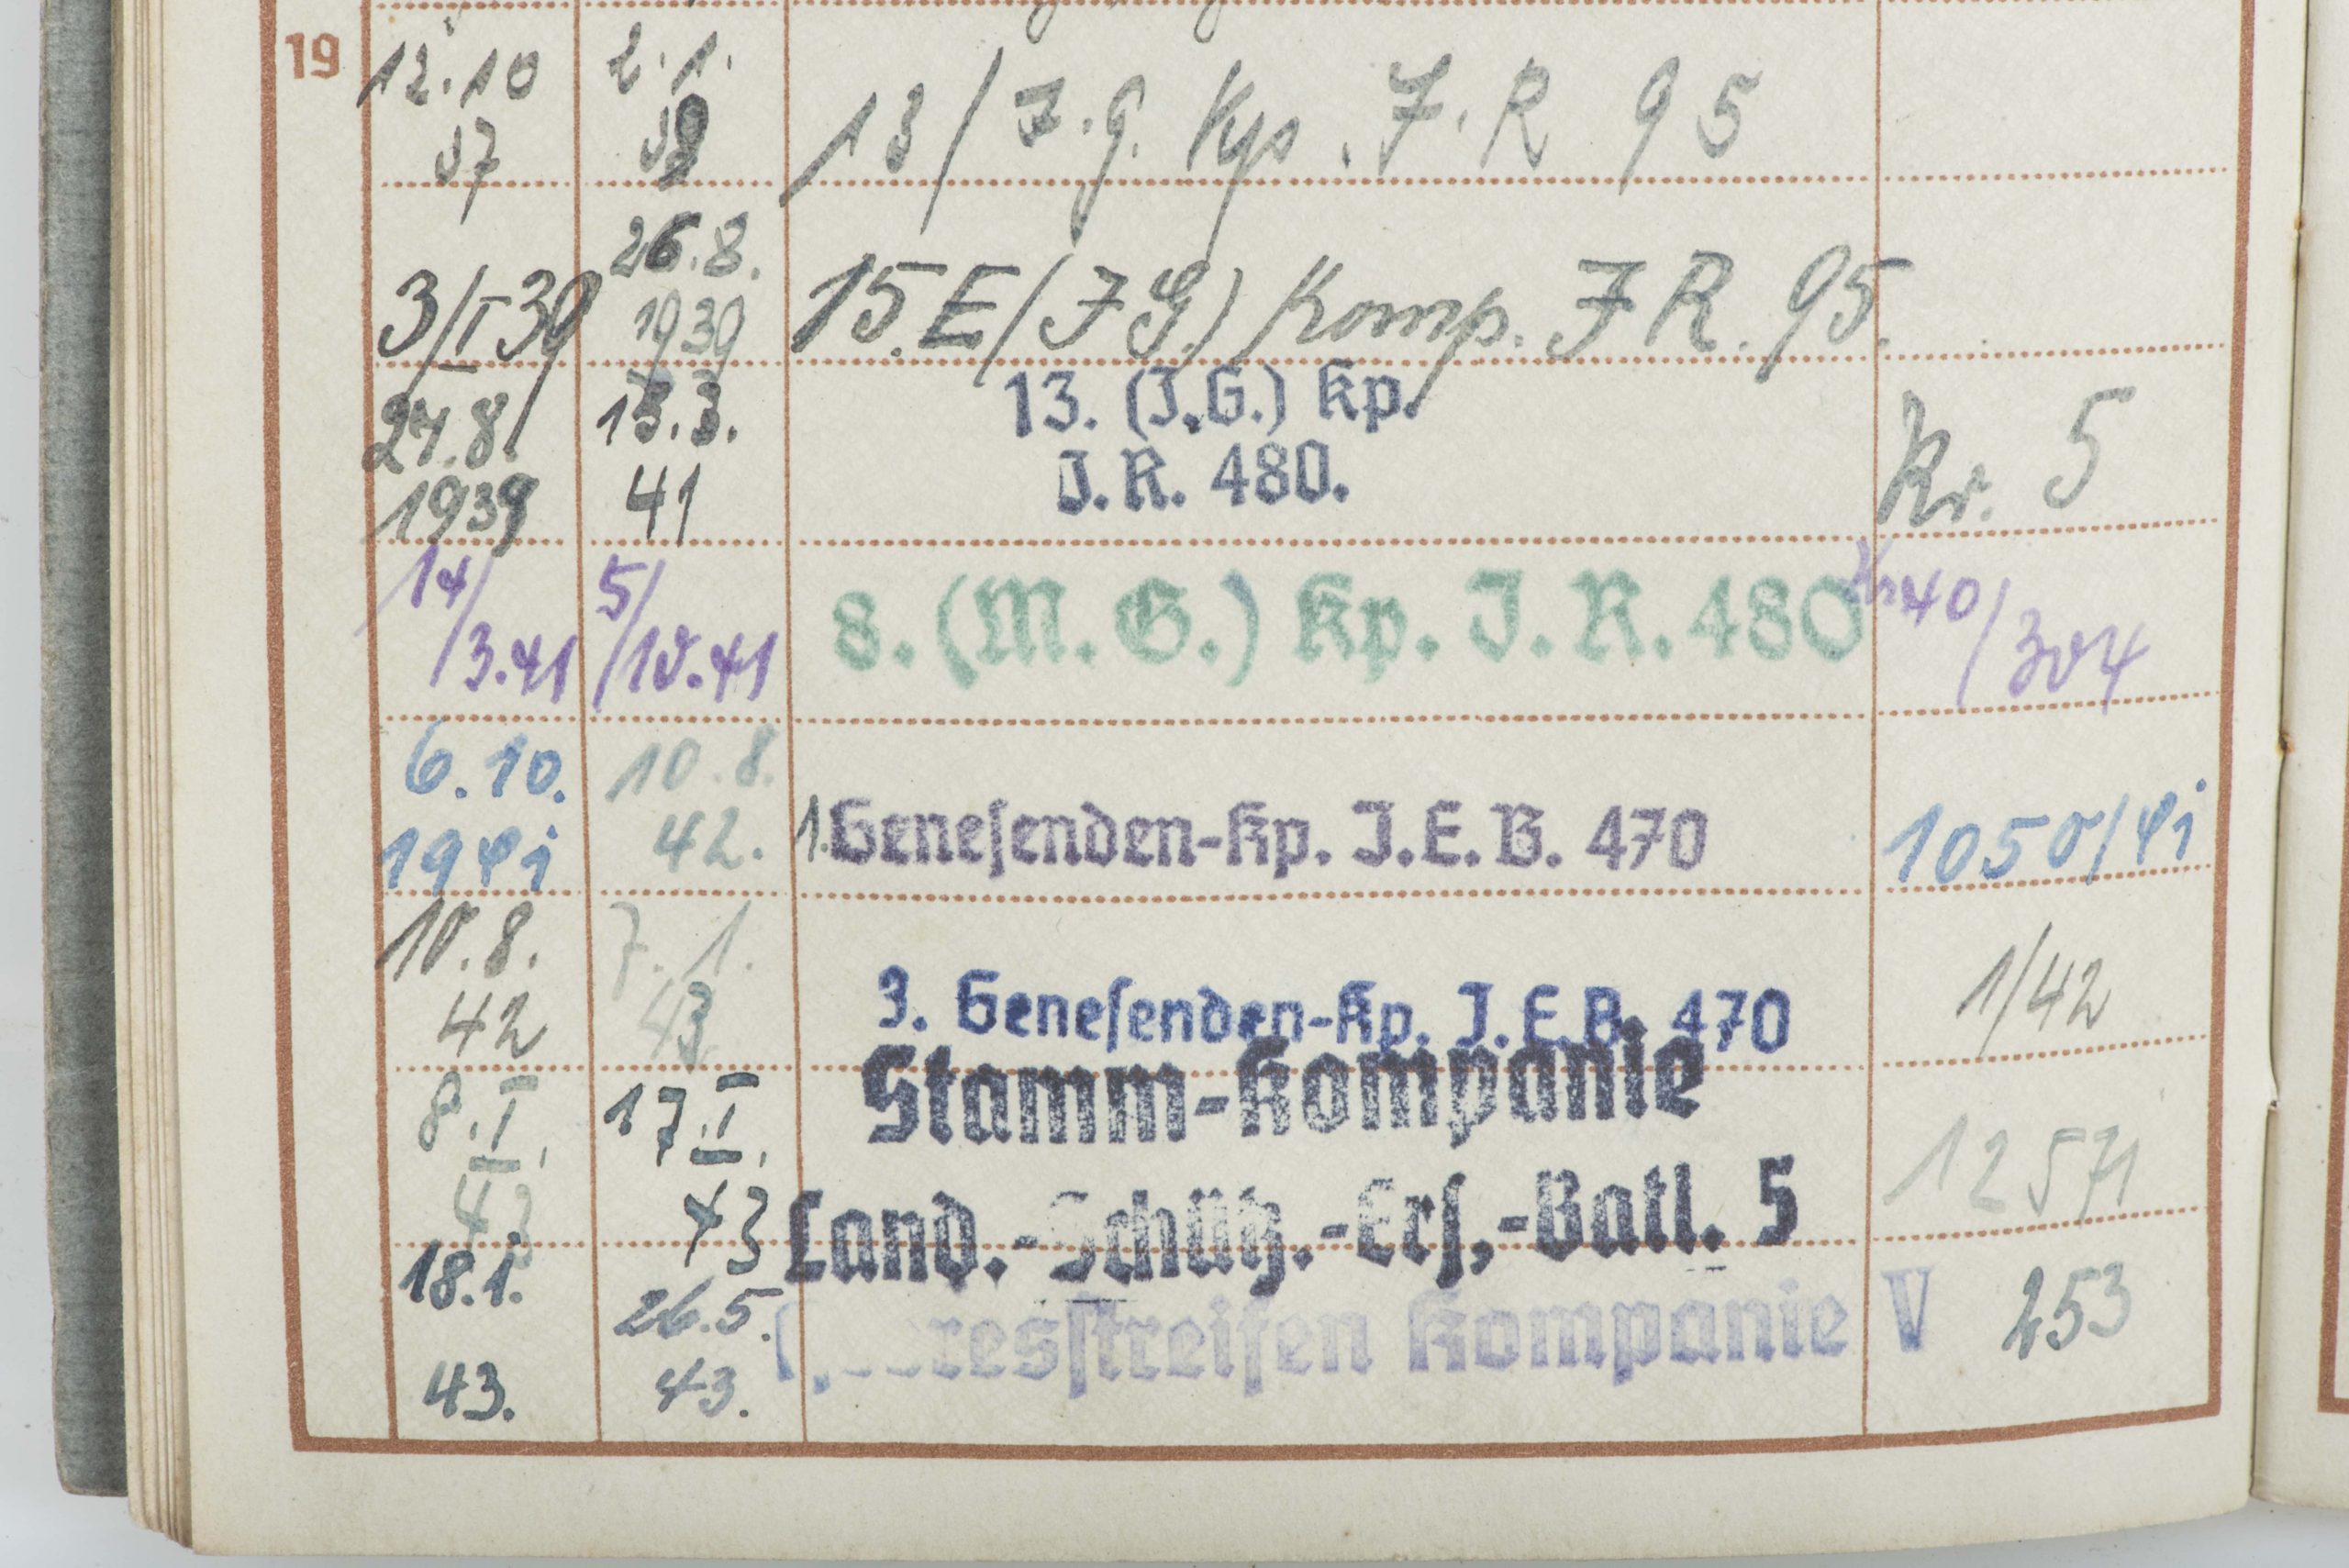 19
12.10
37
2.1.
39
13/J.G. Kp. J.R 95
3/I 39
26.8.
1939
15.E/(JG) Komp. JR. 95.
27.8.
1939
13.3.
41
13. (J.G.) Kp.
J.R. 480.
Kr. 5
14/3.41
5/10.41
8. (M.G.) Kp. J.R. 480
Kr 40/304
6.10.
1941
10.8.
42.
1. Geneſenden-Kp. J.E.B. 470
1050/41
10.8.
42
7.1.
43
3. Geneſenden-Kp. J.E.B. 470
1/42
8.I.
43
17.I.
43
Stamm-Kompanie
Land.-Schütz.-Erſ.-Batl. 5
12571
18.1.
43.
26.5.
43.
Kompanie V
253